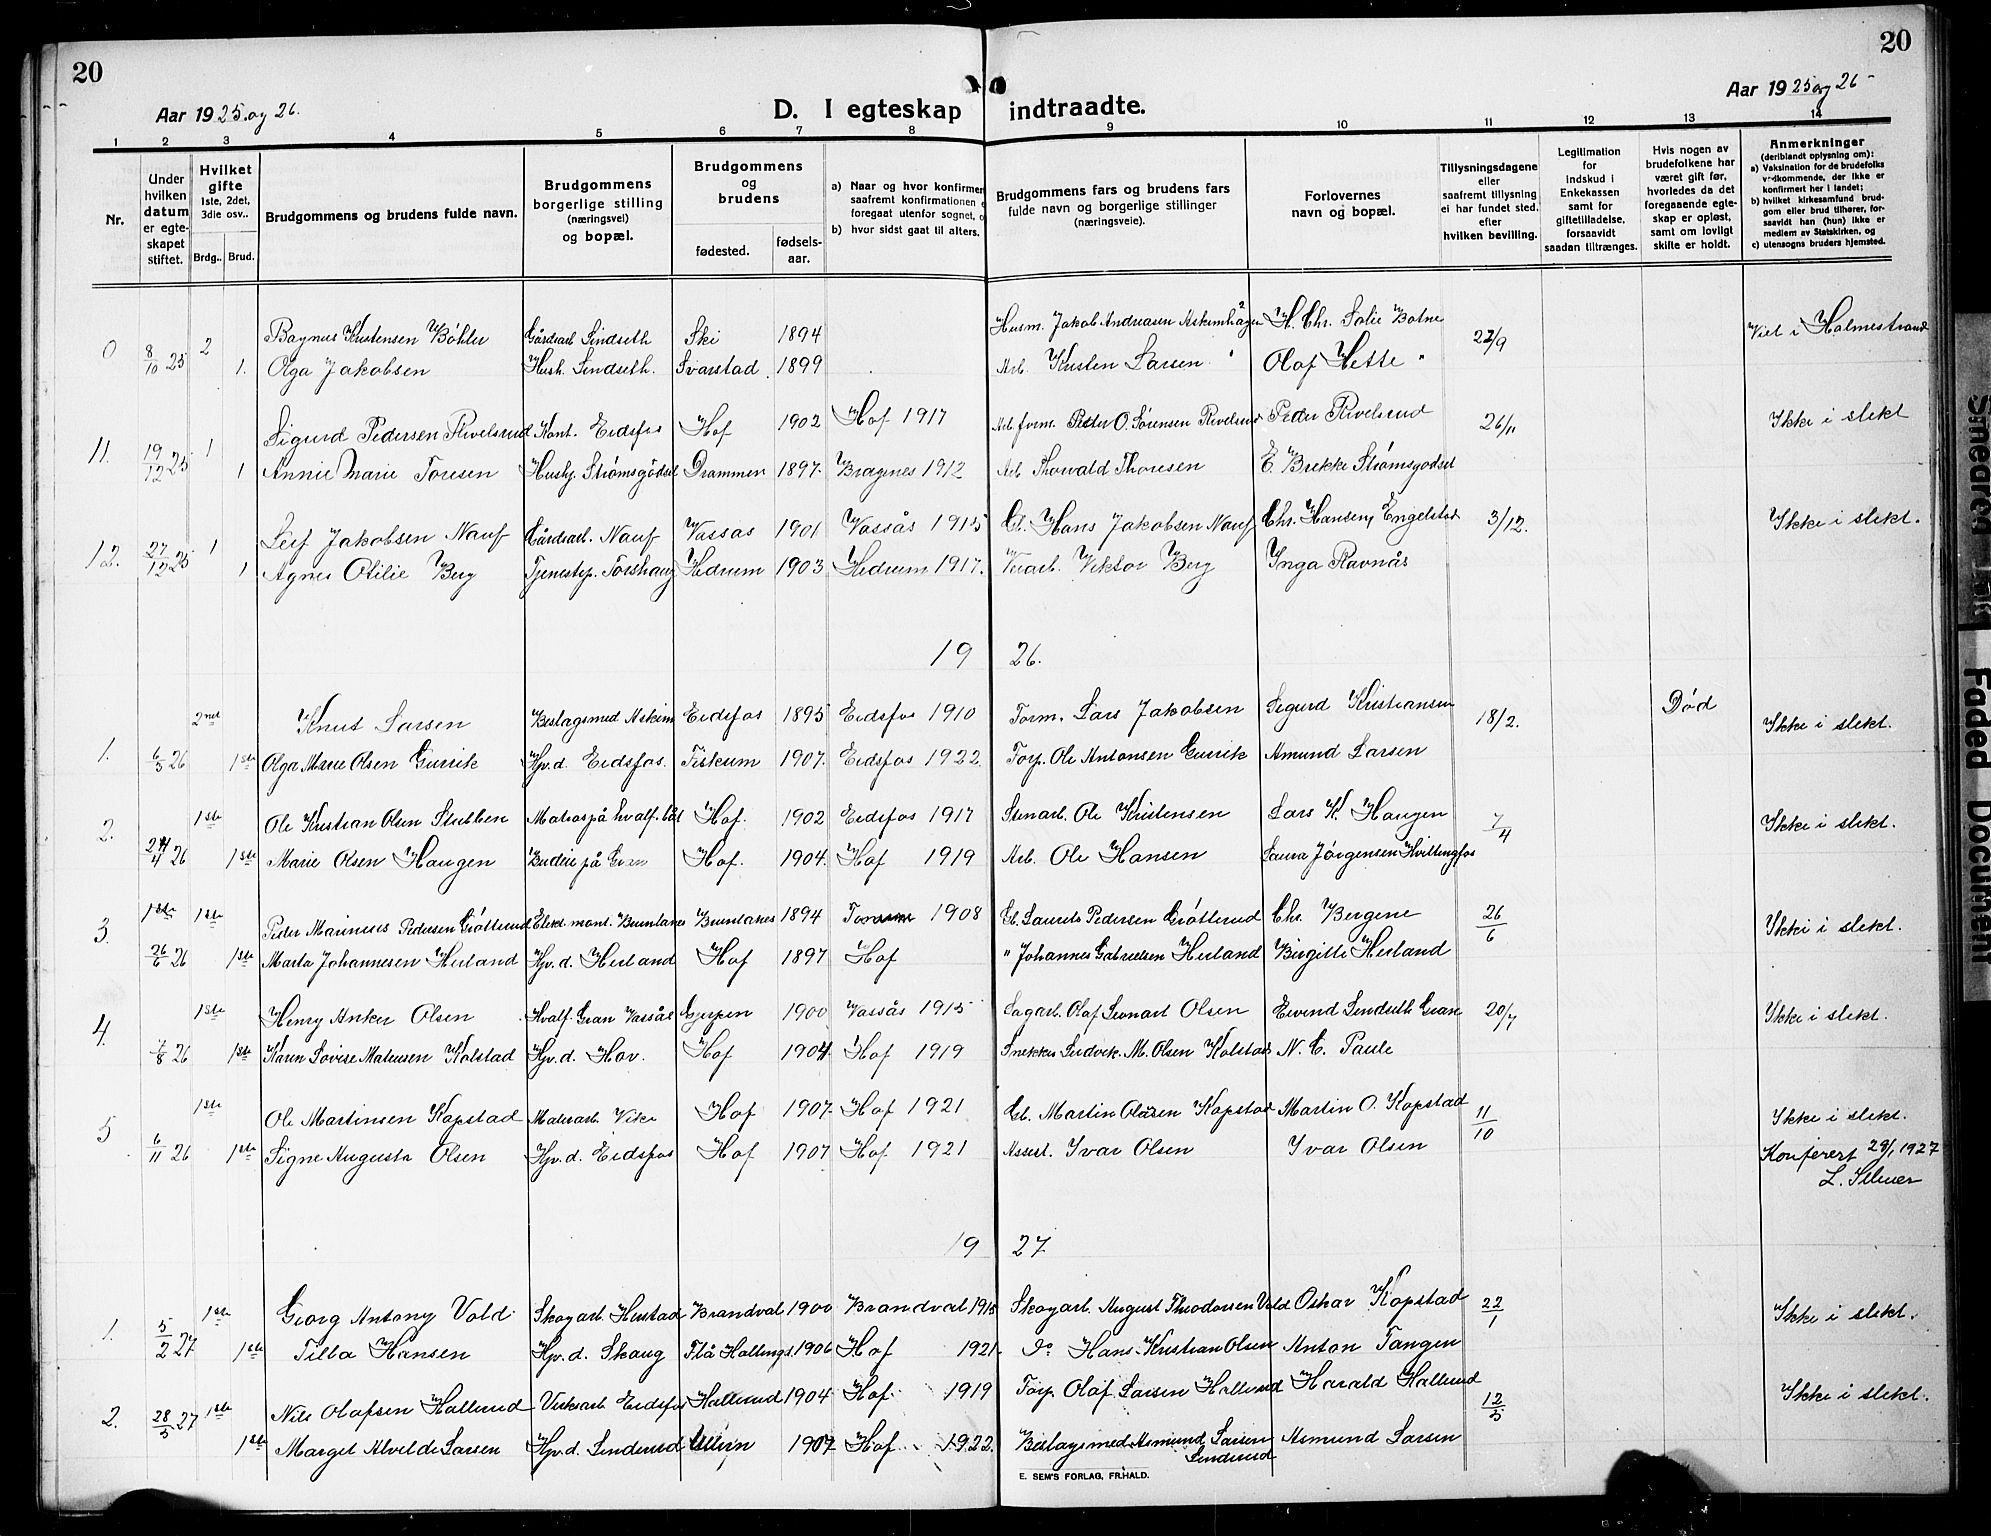 20
20
Aar 1925 og 26.
Aar 1925 og 26
D. I egteskap indtraadte.
1 2 3 4 5 6 7 8 9 10 11 12 13 14
Nr.
Under hvilken datum er egteskapet stiftet.
Hvilket gifte 1ste, 2det, 3die osv..
Brdg.. Brud.
Brudgommens og brudens fulde navn.
Brudgommens borgerlige stilling (næringsvei) og bopæl.
Brudgommens og brudens
fødested.
fødselsaar.
a) Naar og hvor konfirmer
saafremt konfirmationen
foregaat utenfor sognet, o
b) hvor sidst gaat til alters.
Brudgommens fars og brudens fars
fulde navn og borgerlige stillinger
(næringsveie).
Forlovernes navn og bopæl.
Tillysningsdagene eller saafremt tillysning ei har fundet sted. efter hvilken bevilling.
Legitimation for indskud i Enkekassen samt for giftetilladelse, forsaavidt saadan tiltrænges.
Hvis nogen av brudefolkene har været gift før, hvorledes da det foregaaende egteskap er opløst, samt om lovligt skifte er holdt.
Anmerkninger
(deriblandt oplysning om):
a) Vaksination for de brudefolks vedkommende, der ikke er konfirmert her i landet;
b) hvilket kirkesamfund brudgom eller brud tilhører, forsaavidt han (hun) ikke er medlem av Statskirken, og
c) utensogns bruders hjemsted.
0 8/10 25 2 Kristensen Bøhler Gårdsarb. Lindseth Ski 1894 Husm. Jakob Andreasen H. Chr. Solie Botne 27/9 Viet i Holmestrand
1. Olga Jakobsen Hush. Lindseth. Svarstad 1899 Arb. Kristen Larsen " Olaf Hette "
11. 19/12 25 1 Sigurd Pedersen Rivelsrud Kont. Eidsfos Hof 1902 Hof 1917 Arb. form. Peder O. Sørensen Rivelsrud Peder Rivelsrud 26/11 Ikke i slekt
1 Annie Marie Toresen Hushj. Strømsgodset Drammen 1897. Bragnes 1912 Arb. Thorvald Thoresen E. Brekke Strømsgodset
12. 27/12 25 1 Leif Jakobsen Nauf Gårdsarb. Nauf Vassas 1901 Vassås 1915 G. Hans Jakobsen Nauf Chr. Hansen, Engelstad 3/12. Ikke i slekt.
1 Agnes Otilie Berg Tjenestep. Torshaug Hedrum 1903 Hedrum 1917. Veiarb. Viktor Berg Inga Ravnås
19 26.
2net Knut Larsen Beslagsmed Askim Eidsfos 1895 Eidsfos 1910 Form. Lars Jakobsen Sigurd Kristiansen 18/2. Død Ikke i slekt.
1. 6/3 26 1ste Olga Marie Olsen Gurrik Hjv. d. Eidsfos. Fiskum 1907. Eidsfos 1922 Torp. Ole Antonsen Gurrik Amund Larsen
2. 1ste Ole Kristian Olsen Stubben Matros på hvalf. båt Hof. 1902 Eidsfos 1917 Stenarb. Ole Kristensen Lars K. Haugen 7/4 Ikke i slekt.
24/4 26 1ste Marie Olsen Haugen Budeie på Gran Hof. 1904. Hof 1919 Arb. Ole Hansen Laura Jørgensen Hvittingfos
3. 1ste 1ste Peder Marinius Pedersen Grøtterud Elekt. mont. Brunlanes Brunlanes 1894 1908 G. Laurits Pedersen Grøtterud Chr. Bergene 26/6 Ikke i slekt.
26/6 26 1ste Marta Johannesen Heiland Hjv. d. Heiland Hof 1897 Hof " Johannes Gabrielsen Heiland Birgitte Heiland
4. 1ste Henry Anker Olsen Hvalf. Gran Vassås Gjerpen 1900 Vassås 1915 Sagarb. Olaf Lennart Olsen Eivind Lindseth Gran 20/7 Ikke i slekt.
7/8 26 1ste Karen Lovise Mateusen Kolstad Hjv. d. Hov. Hof 1904 Hof 1919 Snekker Ludvik. M. Olsen Kolstad N. C. Paule
5 1ste Ole Martinsen Kopstad Malerarb. Vike Hof 1907. Hof 1921 G. Martin Olasen Kopstad Martin O. Kopstad 11/10 Ikke i slekt.
6/11 26 1ste Signe Augusta Olsen Hjv. d. Eidsfos Hof 1907 Hof 1921 Assist. Ivar Olsen Ivar Olsen Konferert 29/1 1927
L. Selmer
19 27
1. 5/2 27 1ste Georg Antony Vold Skogarb. Hustad Brandval 1900 Brandval 1915 Skogarb. August Theodorsen Vold Oskar Kopstad 22/1 Ikke i slekt.
1ste Tilla Hansen Hjv. d. Skaug Flå Hallings. 1906 Hof 1921. Do Hans Kristian Olsen Anton Tangen
2. 28/5 27 1ste Nils Olafsen Hallerud Verksarb Eidsfos Hallerud 1904 Hof. 1919 Torp. Olaf Larsen Hallerud Harald Hallerud 12/5 Ikke i slekt.
1ste Margit Alvilde Larsen Hjv. d. Linderud Ullern 1907 Hof. 1922. Beslagsmed Asmund Larsen Linderud Asmund Larsen
E. SEM'S FORLAG, FR.HALD.
Smeared Ink
Faded Document